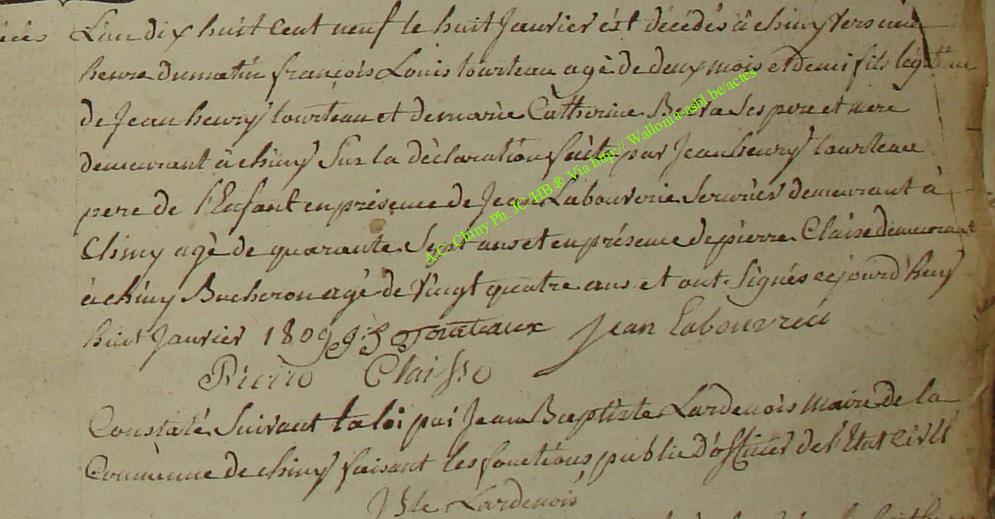 L'an dix huit cent neuf le huit Janvier est décédés à chiny vers une
heure du matin françois Louis tourteau agé de deux mois et demi fils légitime
de Jean henry tourteau et de marie Catherine ses pere et mere
demeurant à chiny Sur la déclaration faite par Jean henry tourteau
pere de l'Enfant en présence de Jean Labouverie Serurier demeurant à
Chiny agé de quarante Sept ans et en présence de pierre Claise demeurant
à chiny Bucheron agé de Vingt quatre ans et ont Signés ajourd'huy
huit Janvier 1809 Tourteaux Jean Labouverie
Pierre Claisse
Constaté Suivant la loi par Jean Baptiste Lardenois maire de la
Commune de chiny faisant les fonctions public d'officier de l'Etat Civil
Lardenois
A.C. Chiny Ph. JC HB ® Via http:// Wallonia-asbl.be/actes